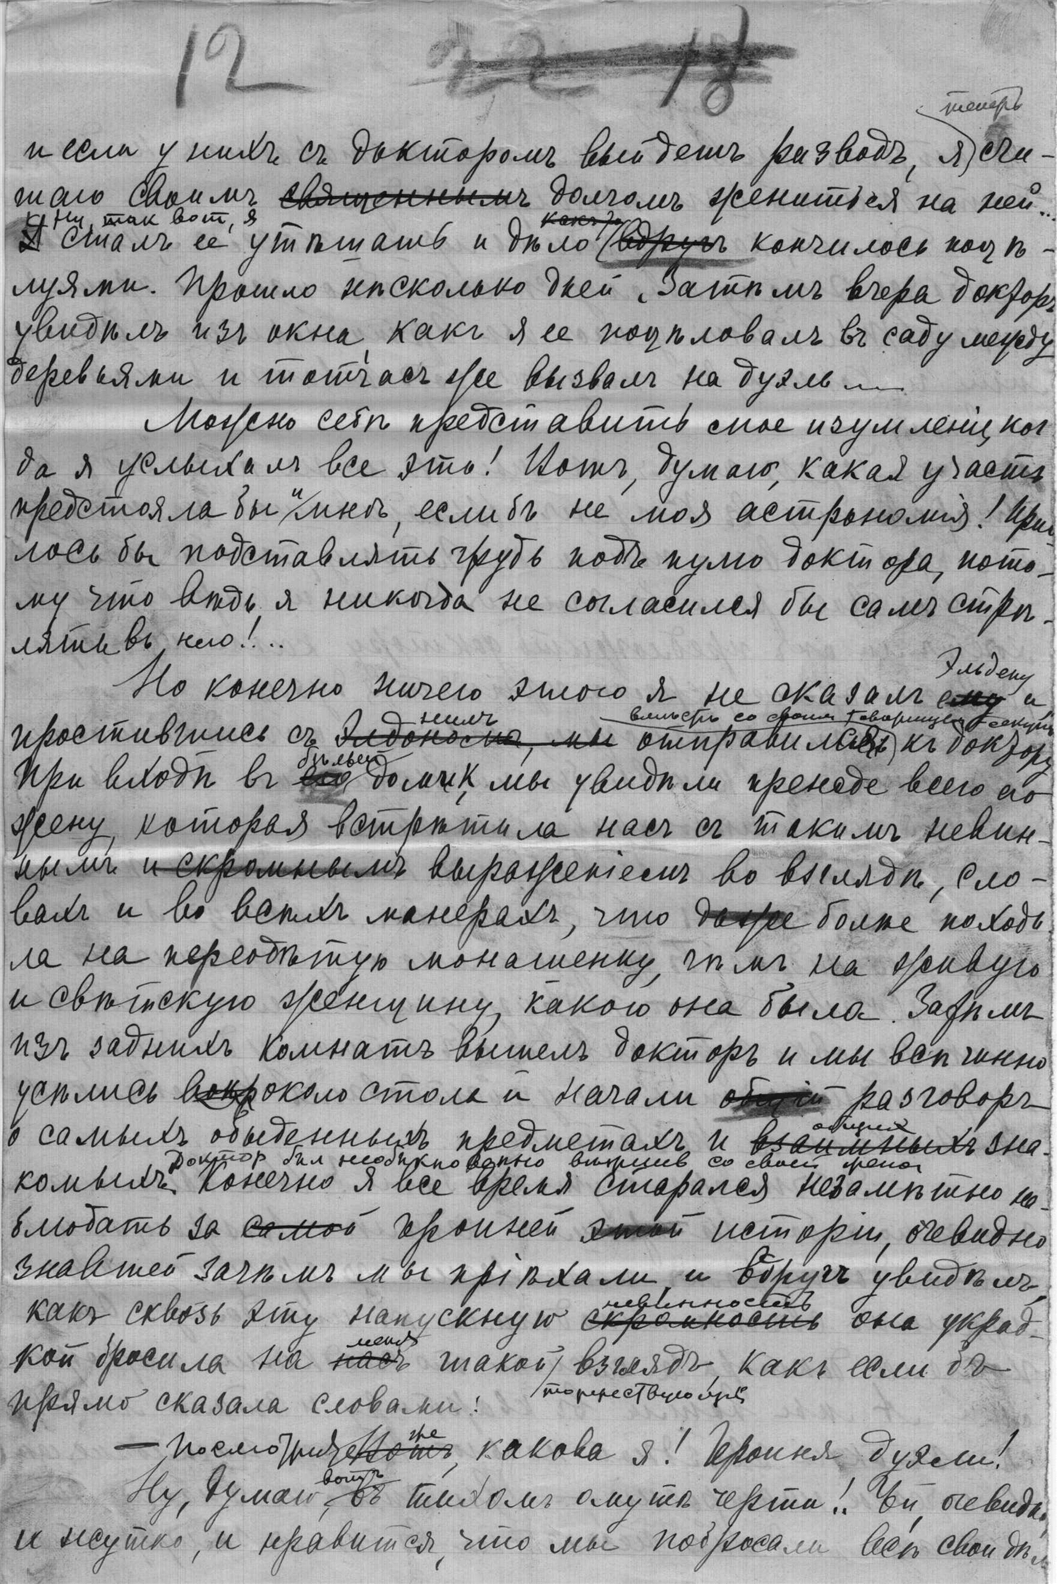 12 22 18
теперь
и если у нихъ съ докторомъ выйдетъ разводъ, я счи-
таю своимъ священнымъ долгомъ жениться на ней...
Ну, так вот, я
какъ то
Я сталъ ее утѣшать и дѣло вдругъ кончилось поцѣ-
луями. Прошло нѣсколько дней. Затѣмъ вчера докторъ
увидѣлъ изъ окна, какъ я ее поцѣловалъ въ саду между
деревьями и тотчасъ же вызвалъ на дуэль...
Можно себѣ представить мое изумленіе, ког
да я услыхалъ все это! Вотъ, думаю, какая участь
предстояла бы и мнѣ, еслибъ не моя астрономія! Приш
лось бы подставлять грудь подъ пулю доктора, пото-
му что вѣдь я никогда не согласился бы самъ стрѣ-
лять въ него!...
Эльдену
Но конечно ничего этого я не сказалъ ему и
нимъ вмѣстѣ со своим товарищем секунд
простившись съ мы отправились къ доктору
бѣлый
При входѣ въ его домик, мы увидѣли прежде всего его
жену, которая встрѣтила насъ съ такимъ невин-
нымъ и скромнымъ выраженіемъ во взглядѣ, сло-
вахъ и во всѣхъ манерахъ, что даже болѣе походи
ла на переодѣтую монашенку, чѣмъ на живую
и свѣтскую женщину, какою она была. Затѣмъ
изъ заднихъ комнатъ вышелъ докторъ и мы всѣ чинно
усѣлись около стола и начали общій разговоръ
общихъ
о самыхъ обыденныхъ предметахъ и взаимныхъ зна-
Доктор был необыкновенно вѣжлив со своей женой
комыхъ. Конечно я все время старался незамѣтно на-
блюдать за самой героиней этой исторіи, очевидно
знавшей зачѣмъ мы пріѣхали, и вдругъ увидѣлъ,
невинность
какъ сквозь эту напускную скромность она украд-
меня
кой бросила на насъ такой взглядъ, какъ если бъ
торжествующій
прямо сказала словами:
же
— Посмотрите, какова я! Героиня дуэли!
вотъ
Ну, думаю, въ тихомъ омутѣ черти!.. Ей, очевидно,
и жутко, и нравится, что мы побросали всѣ свои дѣла